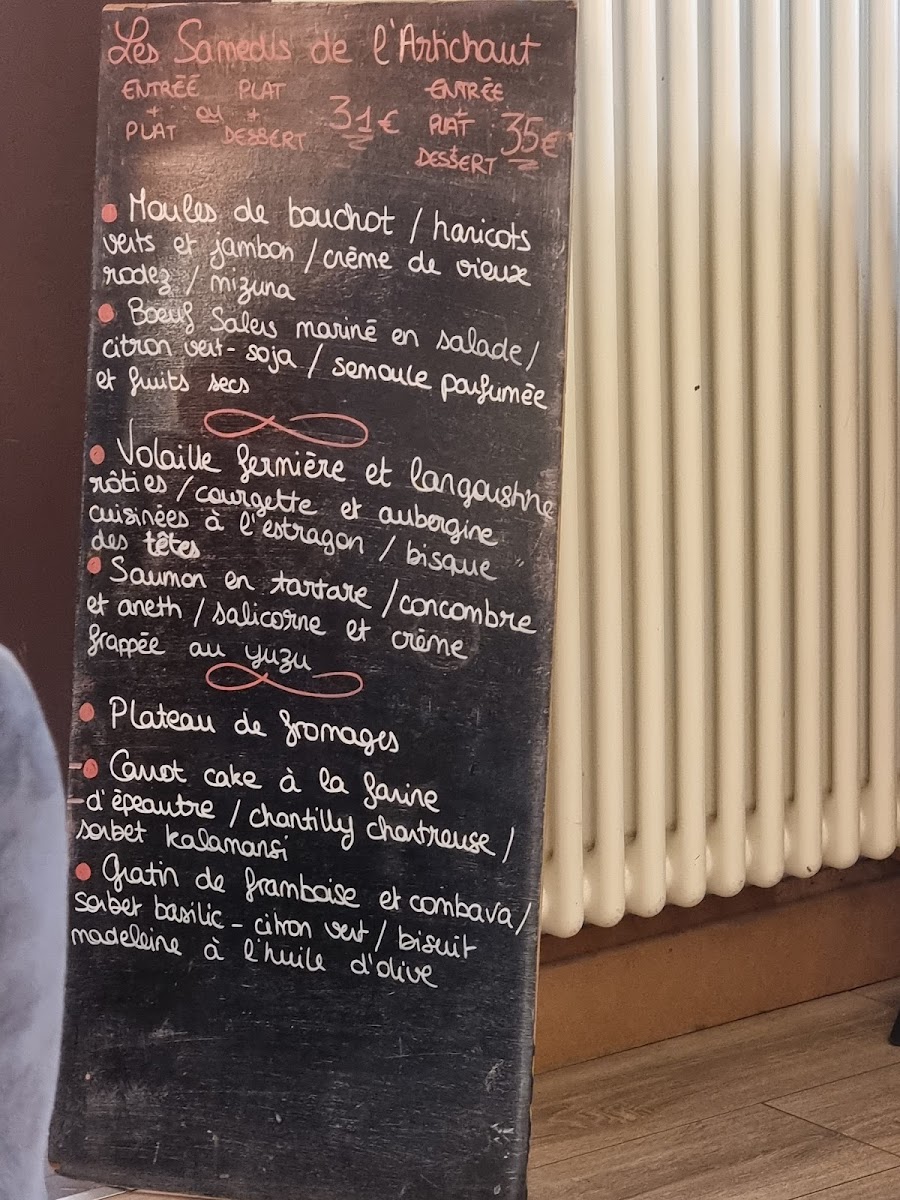 Les Samedis de l'Artichaut
ENTRÉÉ + PLAT ou PLAT + DESSERT 31€
ENTRÉE + PLAT + DESSERT 35€
• Moules de bouchot / haricots
verts et jambon / crème de vieux
rodez / mizuna
• Boeuf Salers mariné en salade /
citron vert - soja / semoule parfumée
et fruits secs
• Volaille fermière et langoustine
rôties / courgette et aubergine
cuisinées à l'estragon / bisque
des têtes
• Saumon en tartare / concombre
et aneth / salicorne et crème
frappée au yuzu
• Plateau de fromages
• Carrot cake à la farine
d'épeautre / chantilly chartreuse /
sorbet kalamansi
• Gratin de framboise et combava /
sorbet basilic - citron vert / biscuit
madeleine à l'huile d'olive